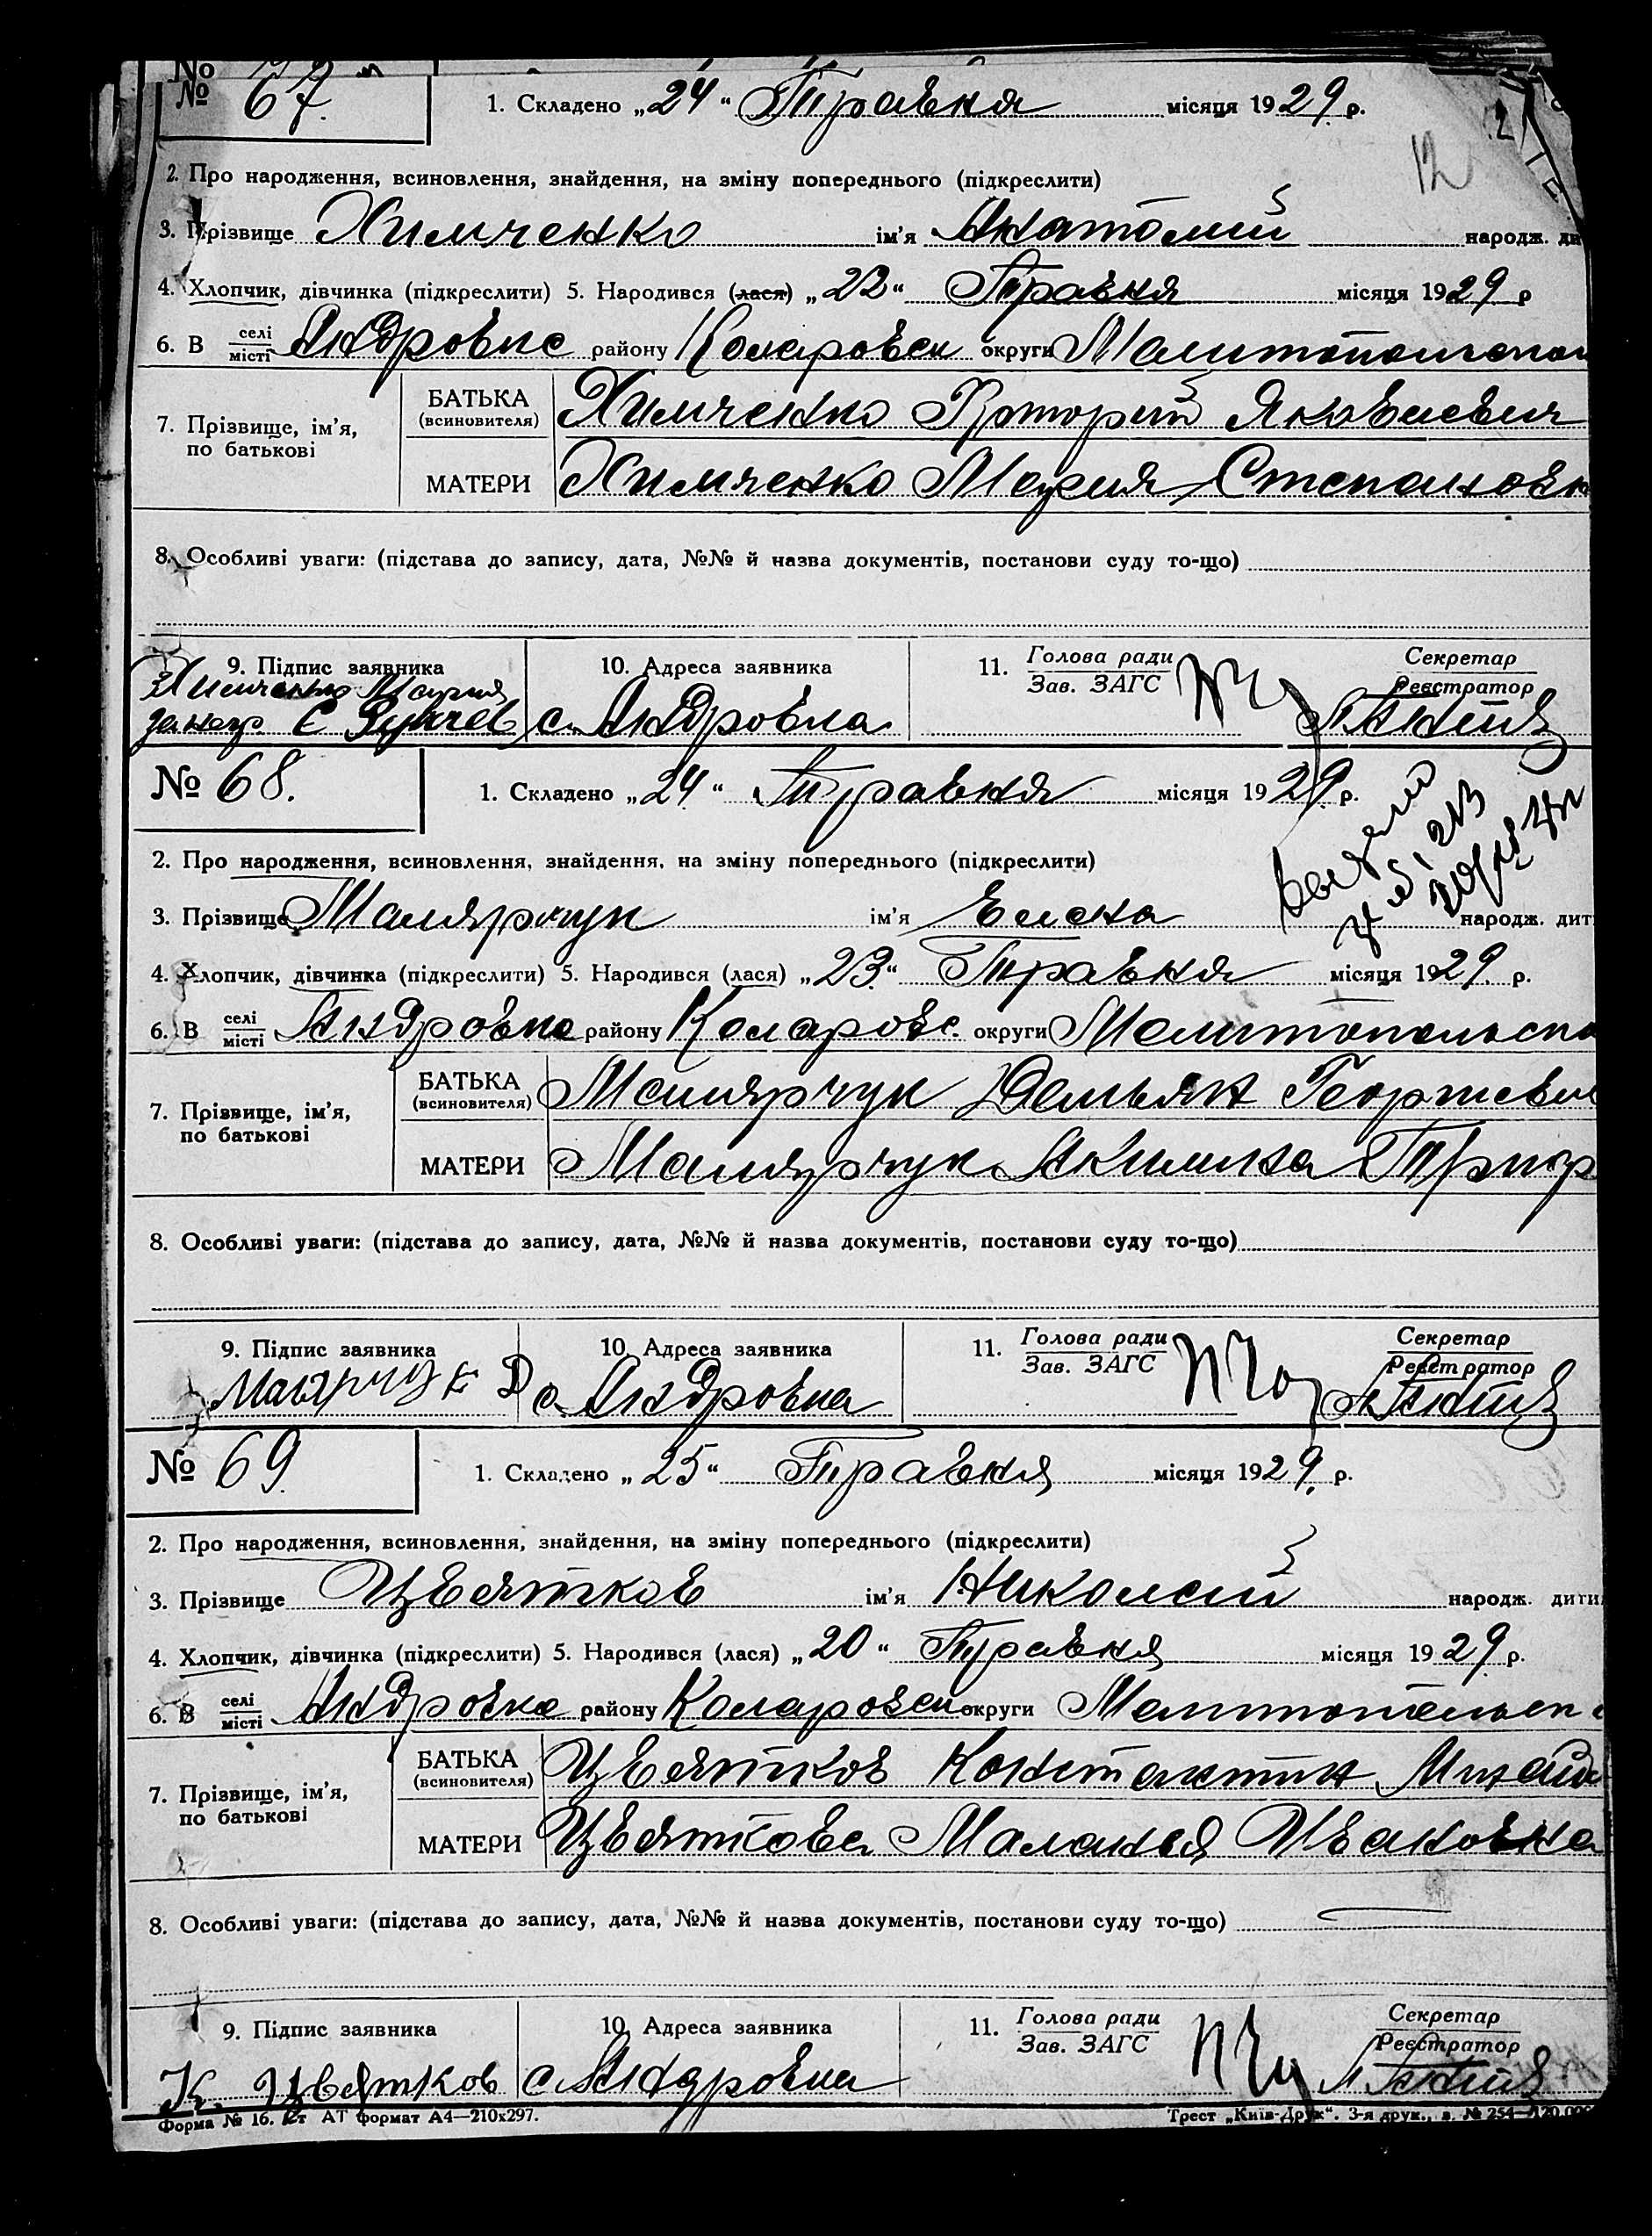 № 67. 1. Складено „24“ Травня місяця 1929 р.
12
2. Про народження, всиновлення, знайдення, на зміну попереднього (підкреслити)
3. Прізвище Химченко ім’я Анатолий народж. ди
4. Хлопчик, дівчинка (підкреслити) 5. Народився (лася) „22“ Травня місяця 1929 р
6. В селі місті Андровке району Коларовск округи Мелитопольско
БАТЬКА (всиновителя) Химченко Яковлевич
7. Прізвище, ім’я, по батькові
МАТЕРИ Химченко Мария Степановн
8. Особливі уваги: (підстава до запису, дата, №№ й назва документів, постанови суду то-що)
9. Підпис заявника 10. Адреса заявника 11. Голова ради Зав. ЗАГС Секретар Реєстратор
Химченко Мария
с. Андровка
№ 68. 1. Складено „24“ Травня місяця 1929 р.
2. Про народження, всиновлення, знайдення, на зміну попереднього (підкреслити)
3. Прізвище Малярчук ім’я Елена народж. дит
4. Хлопчик, дівчинка (підкреслити) 5. Народився (лася) „23“ Травня місяця 1929 р.
6. В селі місті Андровке району Коларовс. округи Мелитопольско
БАТЬКА (всиновителя) Малярчук Демьян Георгиеви
7. Прізвище, ім’я, по батькові
МАТЕРИ Малярчук Акилина Григор
8. Особливі уваги: (підстава до запису, дата, №№ й назва документів, постанови суду то-що)
9. Підпис заявника 10. Адреса заявника 11. Голова ради Зав. ЗАГС Секретар Реєстратор
Малярчук Д с. Андровка
№ 69. 1. Складено „25“ Травня місяця 1929. р.
2. Про народження, всиновлення, знайдення, на зміну попереднього (підкреслити)
3. Прізвище Цветков ім’я Николай народж. дити
4. Хлопчик, дівчинка (підкреслити) 5. Народився (лася) „20“ Травня місяця 1929 р.
6. В селі місті Андровке району Коларовск округи Мелитопольск
БАТЬКА (всиновителя) Цветков Константин Михайл
7. Прізвище, ім’я, по батькові
МАТЕРИ Цветкова Маланья Ивановна
8. Особливі уваги: (підстава до запису, дата, №№ й назва документів, постанови суду то-що)
9. Підпис заявника 10. Адреса заявника 11. Голова ради Зав. ЗАГС Секретар Реєстратор
К. Цветков с. Андровка
Форма № 16. Ст АТ формат А4—210x297. Трест „Київ-Друк“. 3-я друк., з. № 254—120.000